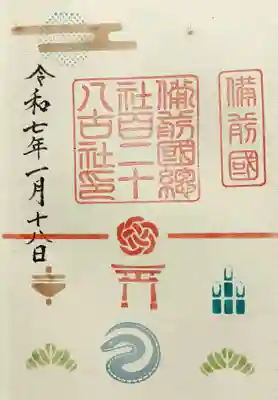 備前國
備前國總
社百二十
八古社印
令和七年一月十八日